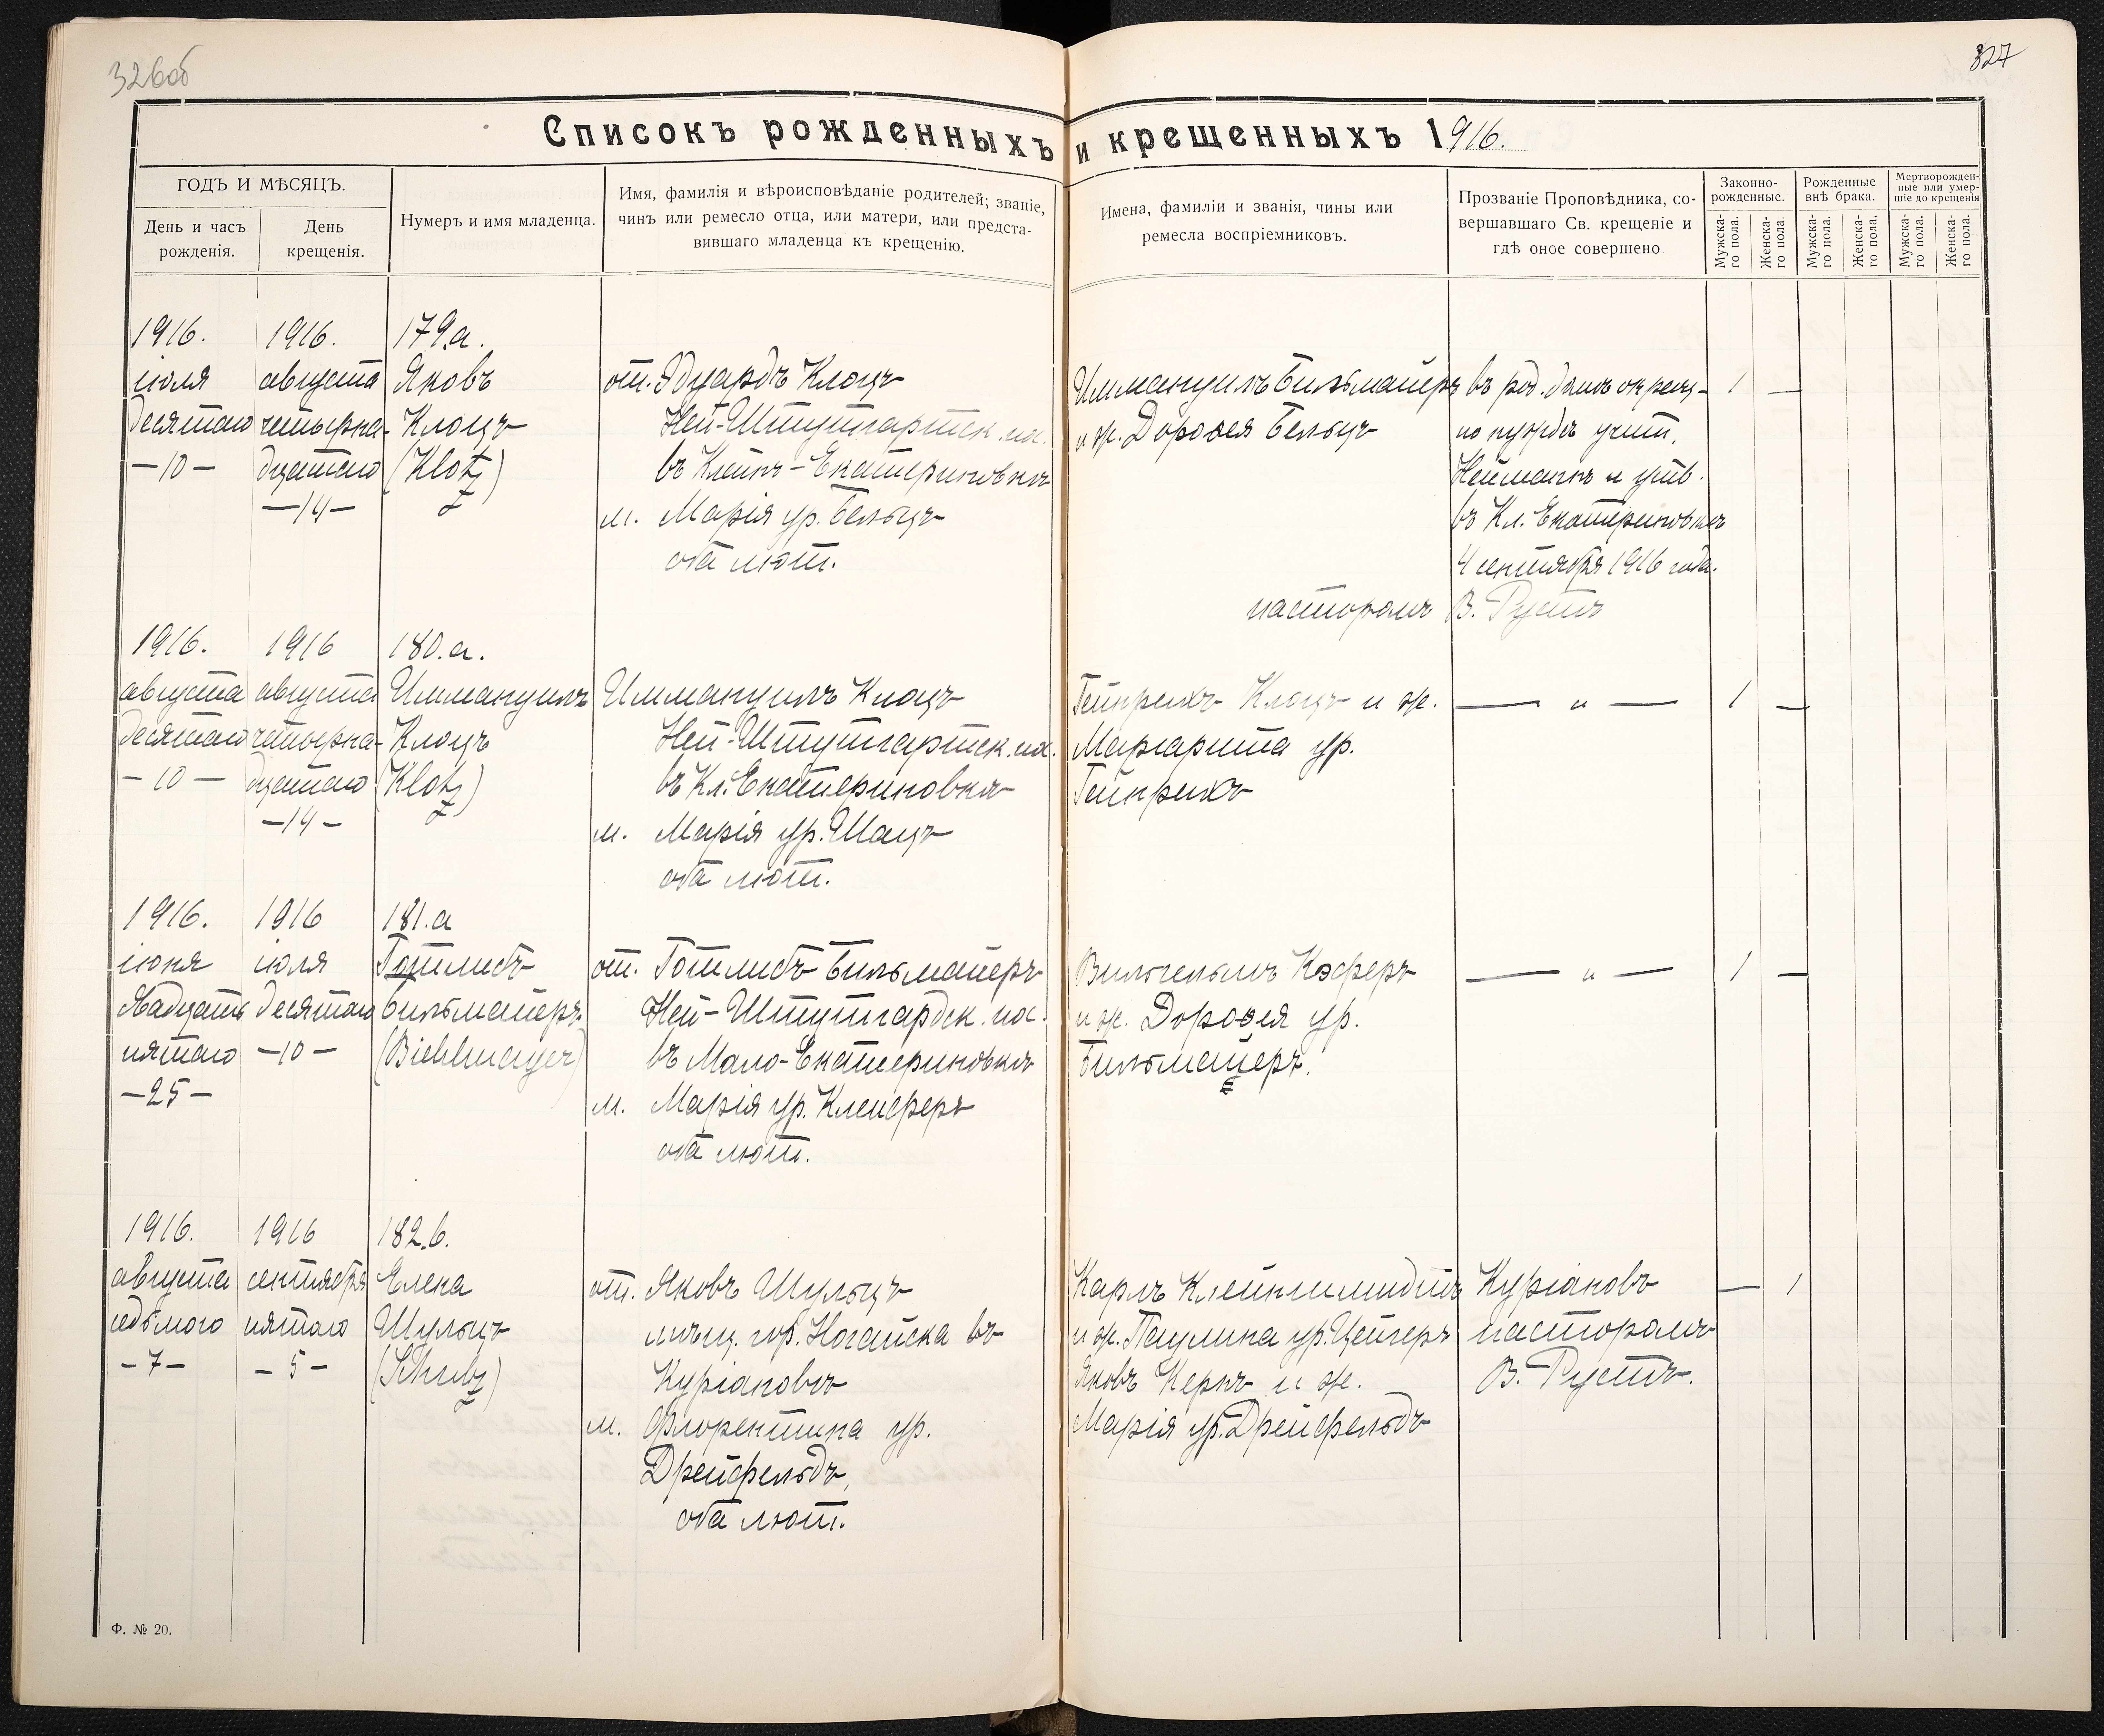 326об
327
Списокъ рожденныхъ и крещенныхъ 1916.
ГОДЪ И МѢСЯЦЪ.
День и часъ рожденія.
День крещенія.
Нумеръ и имя младенца.
Имя, фамилія и вѣроисповѣданіе родителей; званіе,
чинъ или ремесло отца, или матери, или предста-
вившаго младенца къ крещенію.
Имена, фамиліи и званія, чины или
ремесла воспріемниковъ.
Прозваніе Проповѣдника, со-
вершавшаго Св. крещеніе и
гдѣ оное совершено
Законно-
рожденные.
Рожденные
внѣ брака.
Мертворожден-
ные или умер-
шіе до крещенія
Мужска-
го пола.
Женска-
го пола.
Мужска-
го пола.
Женска-
го пола.
Мужска-
го пола.
Женска-
го пола.
1916.
іюля
десятаго
—10—
1916.
августа
четырна-
дцатаго
—14—
179.a.
Яковъ
Клоцъ
(Klotz)
от. Эдуардъ Клоцъ
Ней-Штутгартск. пос.
въ Клейнъ-Екатериновкѣ
м. Марія ур. Бельцъ
оба лют.
Иммануилъ Бильмайеръ
и ж. Дороѳея Бельцъ
въ род. домѣ окрещ-
по нуждѣ учит.
Нейманнъ и утв.
въ Кл. Екатериновкѣ
4 сентября 1916 года.
пасторомъ В. Рустъ
1 —
1916.
августа
десятаго
—10—
1916
августа
четырна-
дцатаго
—14—
180.a.
Иммануилъ
Клоцъ
(Klotz)
Иммануилъ Клоцъ
Ней-Штутгартск. пос.
въ Кл. Екатериновкѣ
м. Марія ур. Шацъ
оба лют.
Гейнрихъ Клоцъ и ж.
Маргарита ур.
Гейнрихъ
— " —
1 —
1916.
іюня
двадцать
пятаго
—25—
1916
іюля
десятаго
—10—
181.a
Готлибъ
Бильмайеръ
(Biehlmayer)
от. Готлибъ Бильмайеръ
Ней-Штутгардск. пос.
въ Мало-Екатериновкѣ
м. Марія ур. Клейферъ
оба лют.
Вильгельмъ Кэферъ
и ж. Дороѳея ур.
Бильмайеръ.
— " —
1 —
1916.
августа
седьмого
—7—
1916
сентября
пятаго
—5—
182.b.
Елена
Шульцъ
(Schulz)
от. Яковъ Шульцъ
мѣщ. гор. Ногайска въ
Куріановѣ
м. Флорентина ур.
Дрейфельдъ,
оба лют.
Карлъ Клейншмидтъ
и ж. Паулина ур. Цейгеръ
Яковъ Кернъ и ж.
Марія ур. Дрейфельдъ
Куріановъ
пасторомъ
В. Рустъ.
— 1
Ф. № 20.